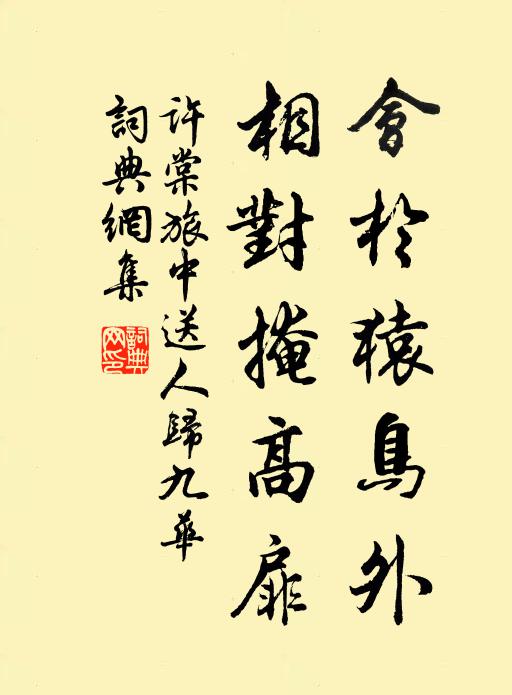 會於猿鳥外
相對掩高扉
許棠旅中送人歸九華
詞典網集
詞典網印